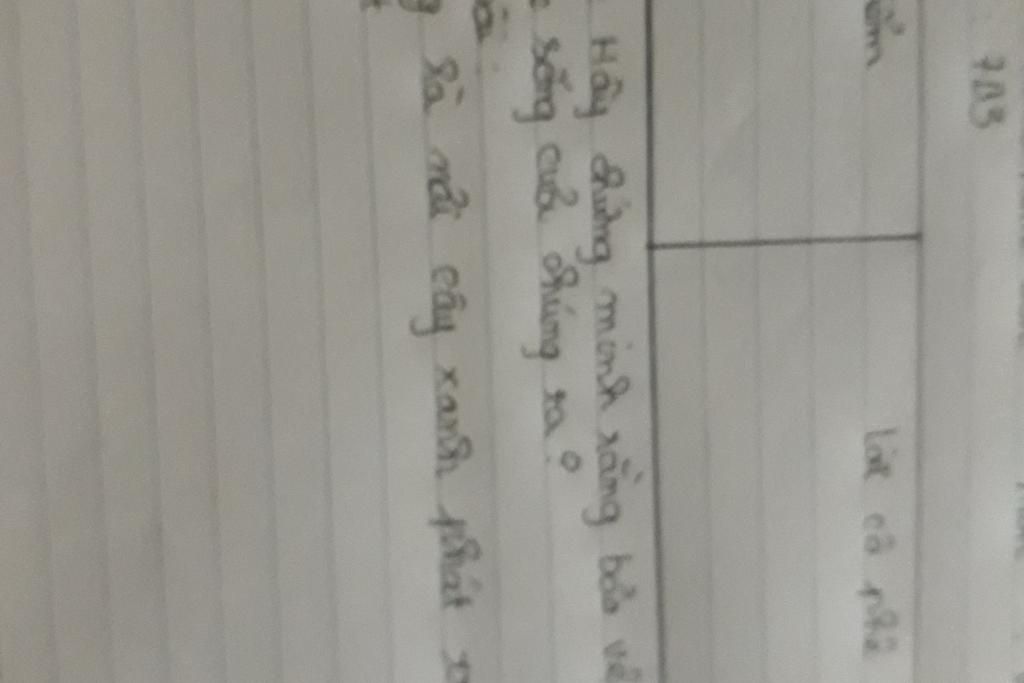 7A3
Lời cô phê
Hãy chứng minh rằng bảo vệ
sống của chúng ta.
là nơi cây xanh phát